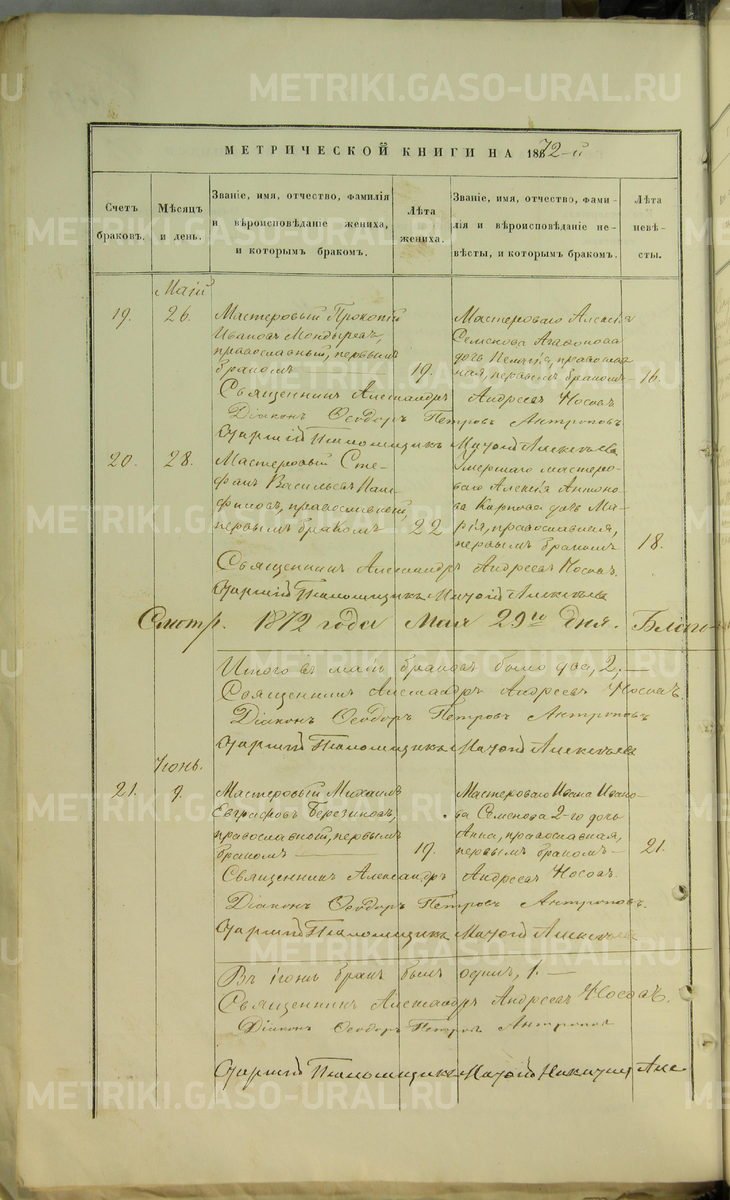 METRIKI.GASO-URAL.RU
МЕТРИЧЕСКОЙ КНИГИ НА 1872-й
Счетъ браковъ.
Мѣсяцъ и день.
Званіе, имя, отчество, фамилія
и вѣроисповѣданіе жениха,
и которымъ бракомъ.
Лѣта жениха.
Званіе, имя, отчество, фами-
лія и вѣроисповѣданіе не-
вѣсты, и которымъ бракомъ.
Лѣта невѣ-
сты.
Маій
19. 26. Мастеровый Прокопій
Ивановъ Мондыревъ,
православный, первымъ
бракомъ 19.
Мастероваго Алексія
Семенова Агафонова
дочь Пелагія, православ
ная, первымъ бракомъ 16.
Священникъ Александръ Андреевъ Носовъ
Діаконъ Ѳеодоръ Петровъ Антроповъ
Старшій Псаломщикъ Алексѣевъ
20. 28. Мастеровый Сте-
фанъ Васильевъ Пан-
филовъ, православный,
первымъ бракомъ 22
Умершаго мастеро-
ваго Алексія Антоно-
ва Карпова дочь Ма-
рія, православная,
первымъ бракомъ 18.
Священникъ Александръ Андреевъ Носовъ.
Старшій Псаломщикъ Алексѣевъ
Смотр. 1872 года Мая 29го дня. Благо-
Итого въ маіѣ браковъ было два, 2,—
Священникъ Александръ Андреевъ Носовъ.
Діаконъ Ѳеодоръ Петровъ Антроповъ
Старшій Псаломщикъ Алексѣевъ
Іюнь.
21. 9. Мастеровый Михаилъ
Евграфовъ Березиновъ,
православный, первымъ
бракомъ — 19.
Мастероваго Ивана Ивано-
ва Семенова 2-го дочь
Анна, православная,
первымъ бракомъ — 21.
Священникъ Александръ Андреевъ Носовъ.
Діаконъ Ѳеодоръ Петровъ Антроповъ.
Старшій Псаломщикъ Алексѣевъ
Въ іюнь бракъ былъ одинъ, 1.—
Священникъ Александръ Андреевъ Носовъ.
Діаконъ Ѳеодоръ Петровъ Антроповъ
Старшій Псаломщикъ Але